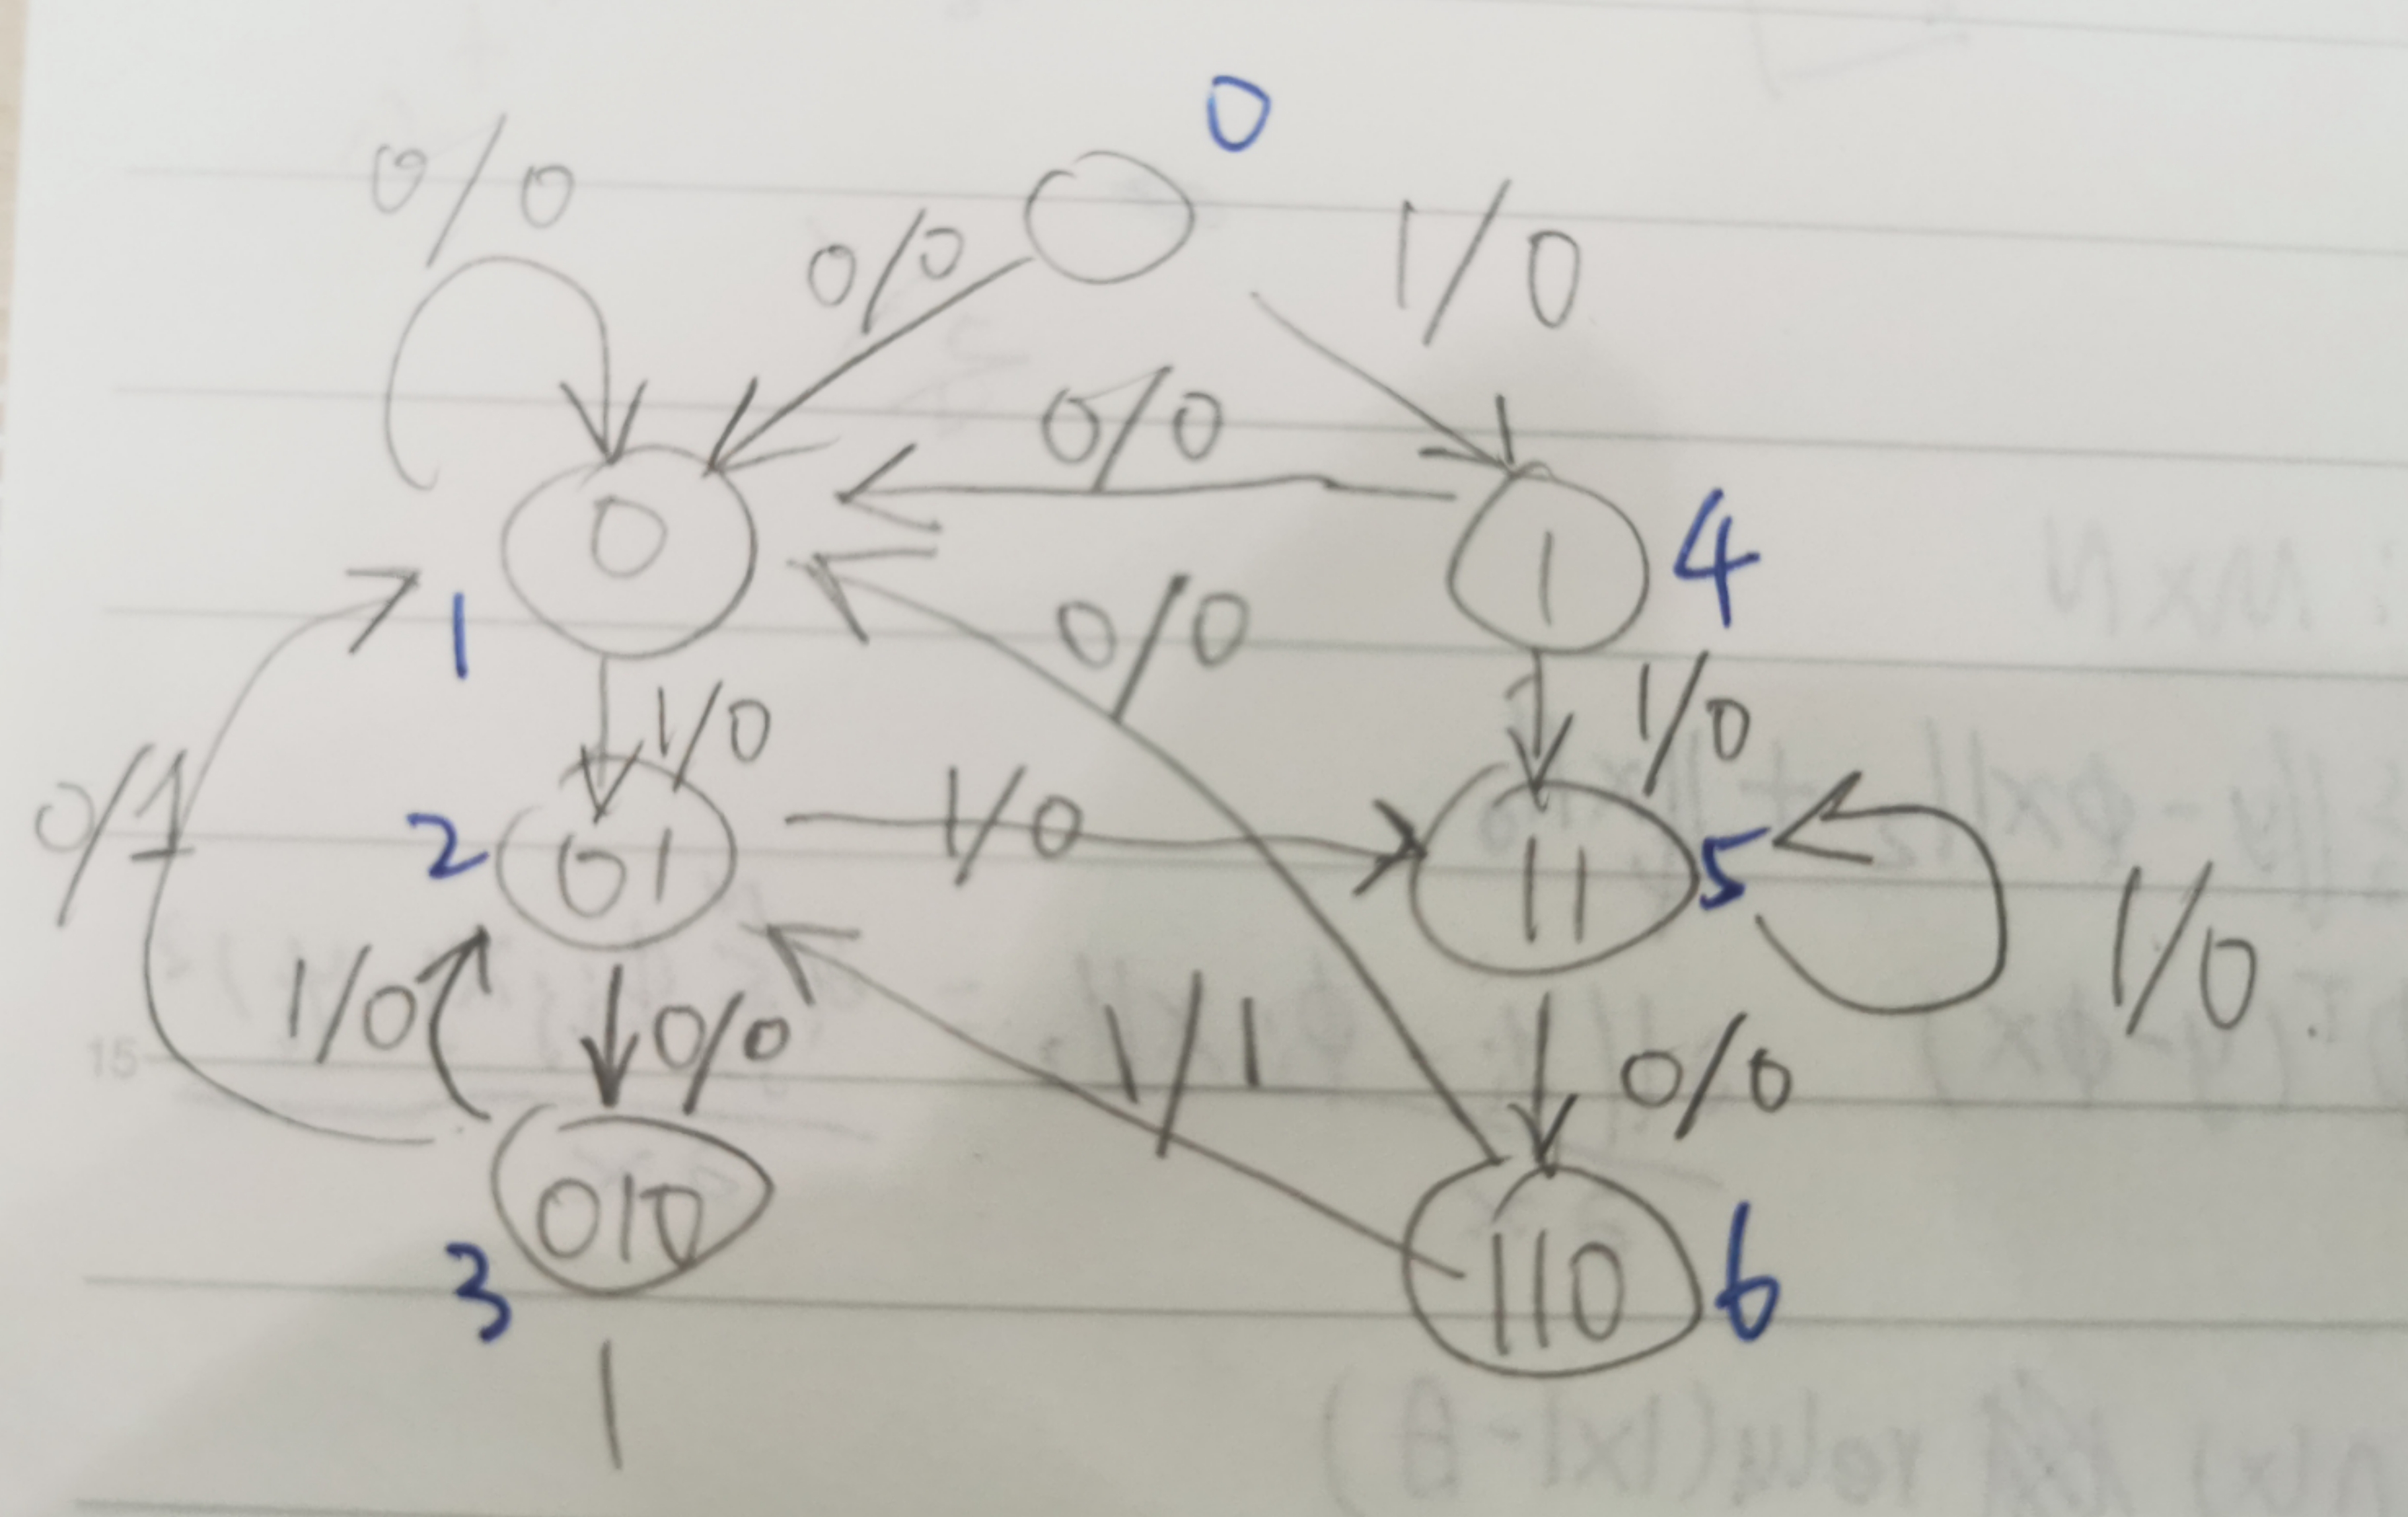 0
0/0
0/0
1/0
0/0
0
1
4
1
0/0
1/0
1/0
0/1
1/0
2
01
11
5
1/0
1/0
0/0
1/1
0/0
010
110
6
3
1
15